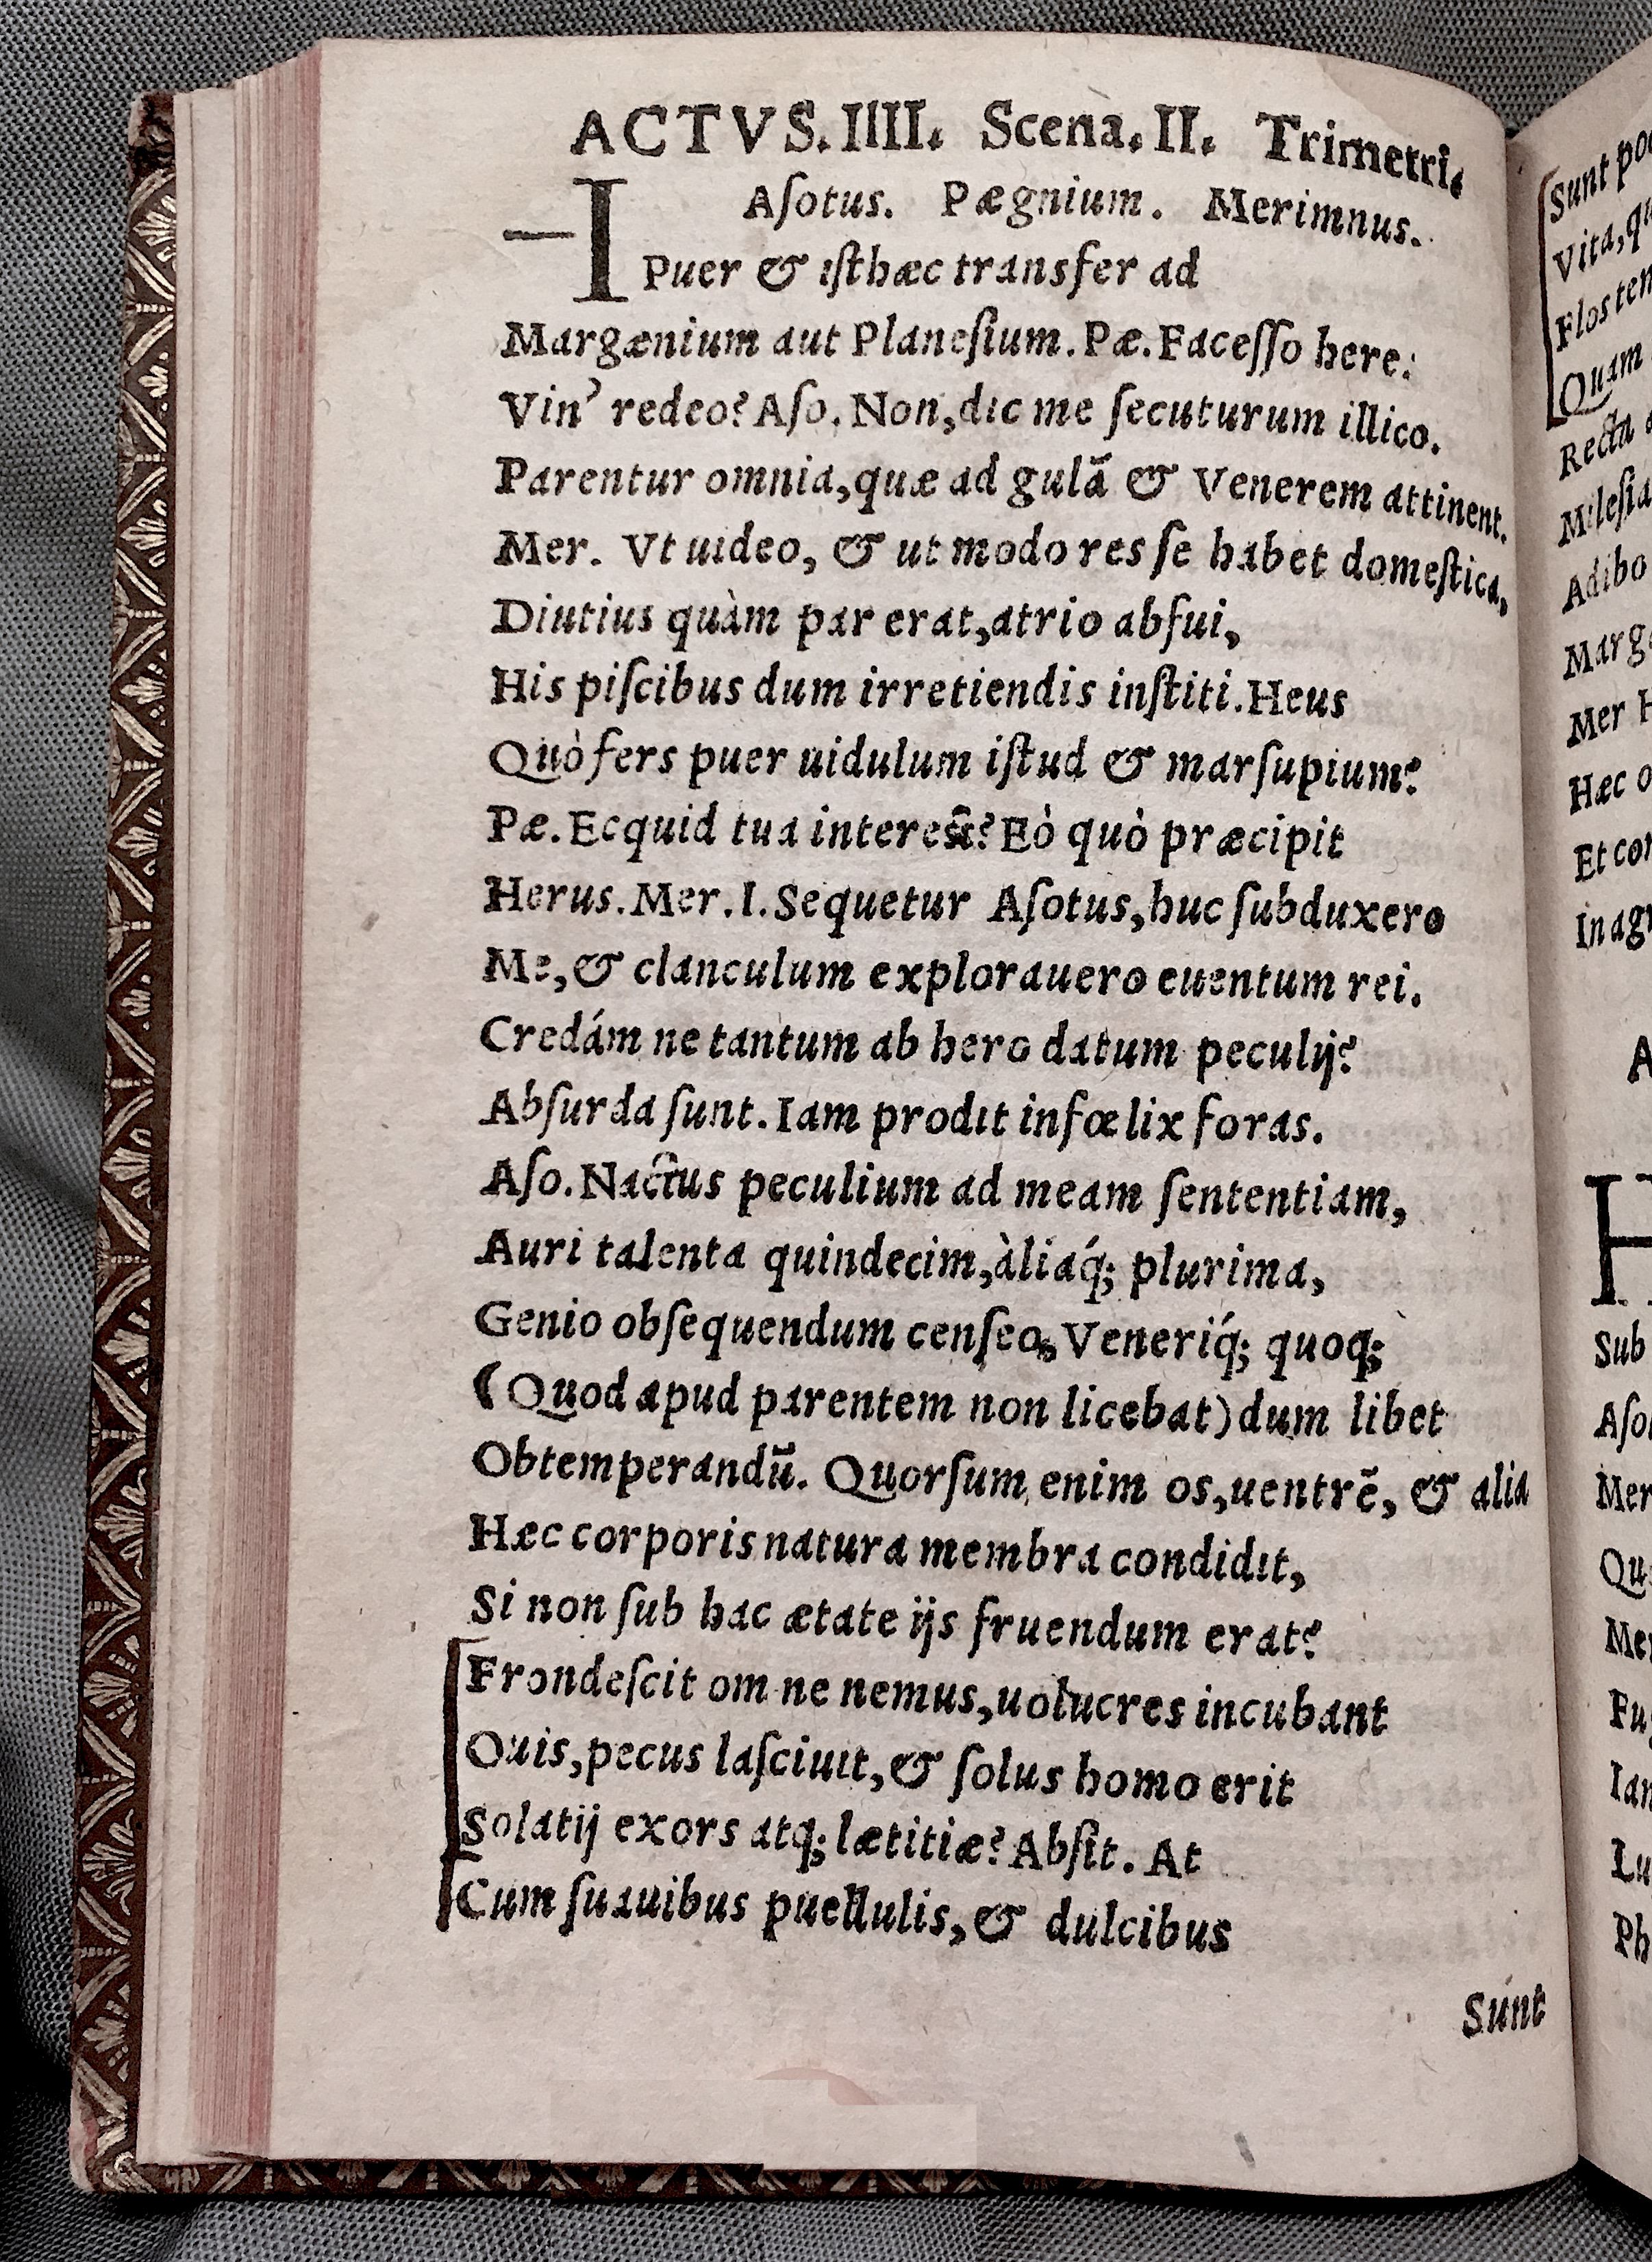 ACTVS. IIII. Scena. II. Trimetri.
Aſotus. Pægnium. Merimnus.
I Puer & iſthæc transfer ad
Margænium aut Planeſium. Pæ. Faceſſo here:
Vin' redeo? Aſo. Non, dic me ſecuturum illico.
Parentur omnia, quæ ad gulã & Venerem attinent.
Mer. Vt uideo, & ut modo res ſe habet domeſtica,
Diutius quàm par erat, atrio abfui,
His piſcibus dum irretiendis inſtiti. Heus
Quò fers puer uidulum iſtud & marſupium?
Pæ. Ecquid tua intereſt? Eò quò præcipit
Herus. Mer. I. Sequetur Aſotus, huc ſubduxero
Me, & clanculum explorauero euentum rei.
Credám ne tantum ab hero datum peculij?
Abſurda ſunt. Iam prodit infœlix foras.
Aſo. Nactus peculium ad meam ſententiam,
Auri talenta quindecim, àliaq́; plurima,
Genio obſequendum cenſeo, Veneriq́; quoq;
(Quod apud parentem non licebat) dum libet
Obtemperandũ. Quorſum enim os, uentrẽ, & alia
Hæc corporis natura membra condidit,
Si non ſub hac ætate ijs fruendum erat?
Frondeſcit omne nemus, uolucres incubant
Ouis, pecus laſciuit, & ſolus homo erit
Solatij exors atq; lætitiæ? Abſit. At
Cum ſuauibus puellulis, & dulcibus
Sunt
Vita, qu
Flos tem
Quam
Recta
Mileſia
Adibo
Marg
Mer H
Hæc o
Et con
In agr
A
H
Sub
Aſo
Mer
Qu
Mer
Fu
Iam
Lu
Ph